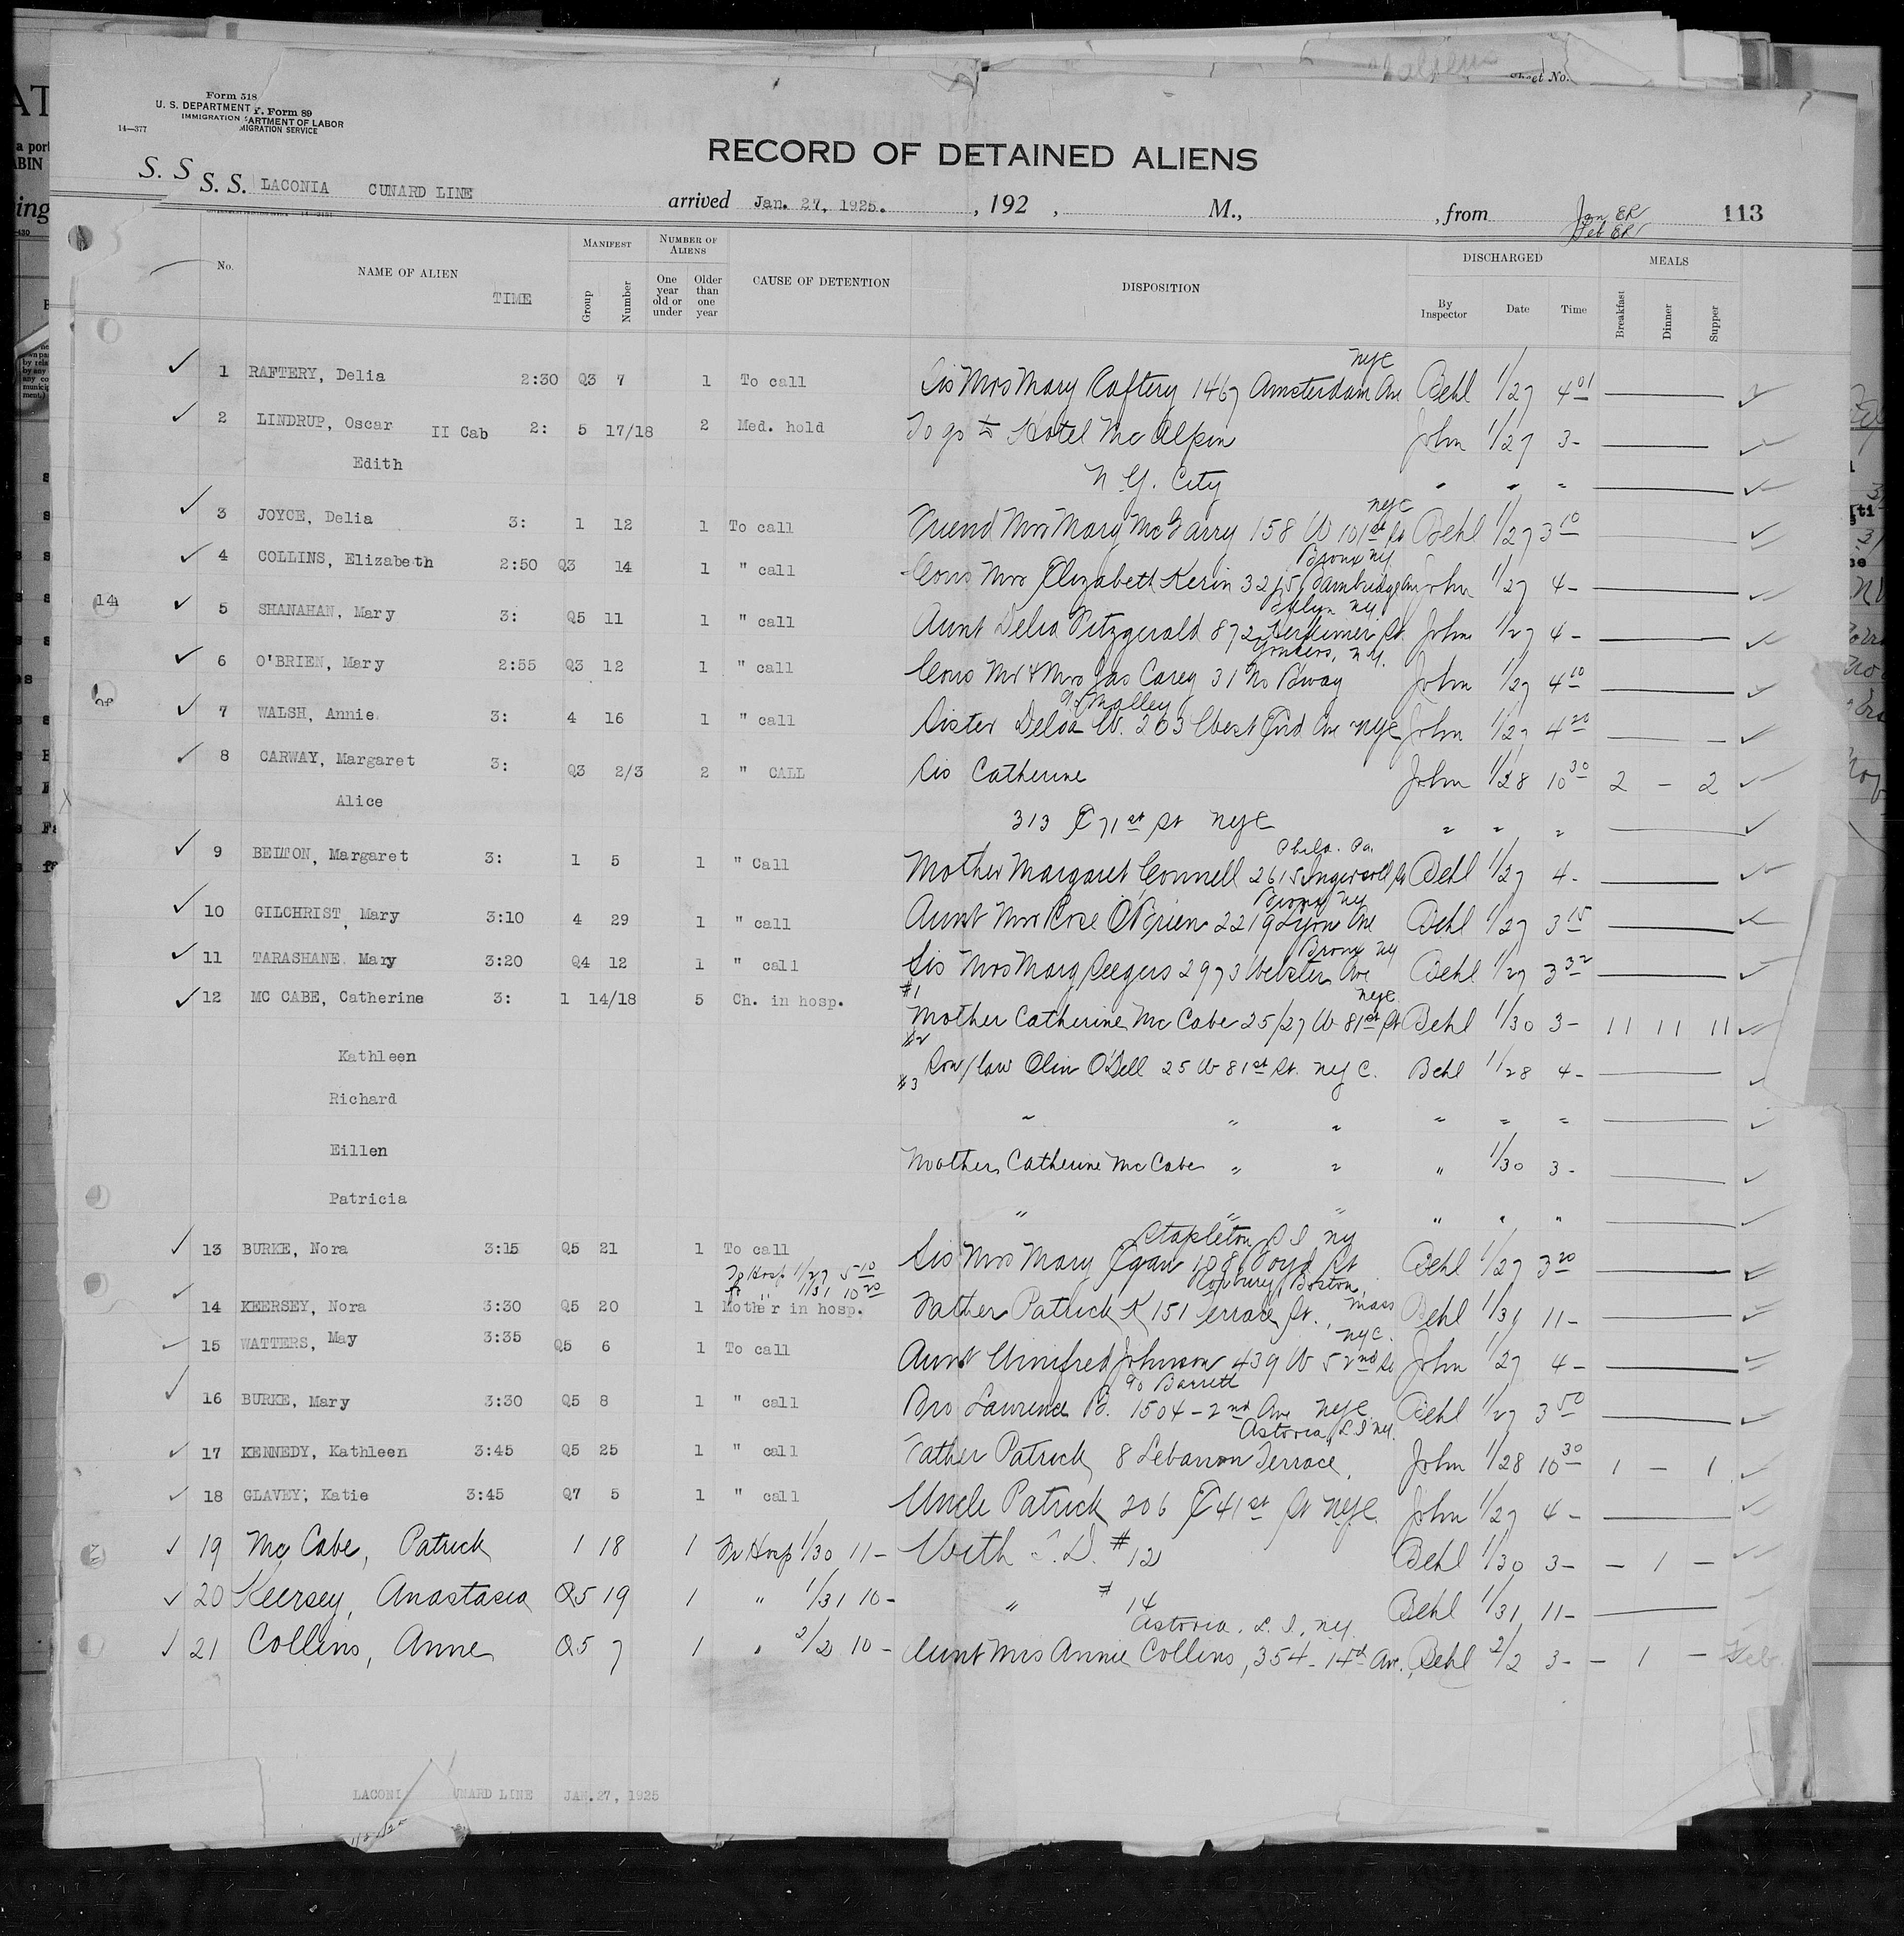 Sheet No.
Form 518
U. S. DEPARTMENT
r. Form 89
IMMIGRATION S
ARTMENT OF LABOR
MIGRATION SERVICE
14—377
RECORD OF DETAINED ALIENS
S. S
S. S. LACONIA CUNARD LINE arrived Jan. 27, 1925. , 192 , M., , from Jan ER 113
Feb ER
No. NAME OF ALIEN TIME MANIFEST Group Number NUMBER OF ALIENS One year old or under Older than one year CAUSE OF DETENTION DISPOSITION DISCHARGED By Inspector Date Time MEALS Breakfast Dinner Supper
NYC
1 RAFTERY, Delia 2:30 Q3 7 1 To call Sis Mrs Mary Raftery 1467 Amsterdam Ave Behl 1/27 4 01
2 LINDRUP, Oscar II Cab 2: 5 17/18 2 Med. hold To go to Hotel McAlpin John 1/27 3-
Edith N.Y. City " " "
NYC
3 JOYCE, Delia 3: 1 12 1 To call Friend Mrs Mary McGarry 158 W 101st St Behl 1/27 3 10
Bronx NY
4 COLLINS, Elizabeth 2:50 Q3 14 1 " call Cous Mrs Elizabeth Kerin Cambridge Ave John 1/27 4-
Bklyn NY
14
5 SHANAHAN, Mary 3: Q5 11 1 " call Aunt Delia Fitzgerald 872 Herkimer St. John 1/27 4-
Yonkers, N.Y.
6 O'BRIEN, Mary 2:55 Q3 12 1 " call Cous Mr & Mrs Jas Carey 31 No Bway John 1/27 4 10
c/o Malley
7 WALSH, Annie 3: 4 16 1 " call Sister Delia W. 263 West End Ave NYC John 1/27 4 20
8 CARWAY, Margaret 3: Q3 2/3 2 " CALL Sis Catherine John 1/28 10 30 2 - 2
Alice 313 E 71st St NYC " " "
Phila. Pa.
9 BELTON, Margaret 3: 1 5 1 " Call Mother Margaret Connell 2615 Ingersoll St Behl 1/27 4-
Bronx NY
10 GILCHRIST, Mary 3:10 4 29 1 " call Aunt Mrs Rose O'Brien 2219 Lyon Ave Behl 1/27 3 15
Bronx NY
11 TARASHANE, Mary 3:20 Q4 12 1 " call Sis Mrs Marg Seegers 2973 Webster Ave Behl 1/27 3 32
12 MC CABE, Catherine 3: 1 14/18 5 Ch. in hosp. #1 NYC
Mother Catherine McCabe 25/27 W 81st St Behl 1/30 3- 11 11 11
#2
Kathleen Son/law Olin O'Dell 25 W 81st St. NYC. Behl 1/28 4-
#3
Richard " " " " " "
Eillen Mother Catherine McCabe " " " 1/30 3-
Patricia " " " " " "
Stapleton S I NY
13 BURKE, Nora 3:15 Q5 21 1 To call Sis Mrs Mary Egan 108 Boyd St Behl 1/27 3 20
To Hosp 1/27 5 10
fr " 1/31 10 20
Roxbury, Boston,
14 KEERSEY, Nora 3:30 Q5 20 1 Mother in hosp. Father Patrick K 151 Terrace St., Mass Behl 1/31 11-
NYC.
15 WATTERS, May 3:35 Q5 6 1 To call Aunt Winifred Johnson 439 W 52nd St John 1/27 4-
c/o Barrett
16 BURKE, Mary 3:30 Q5 8 1 " call Bro Lawrence B. 1504-2nd Ave NYC Behl 1/27 3 50
Astoria, L I NY.
17 KENNEDY, Kathleen 3:45 Q5 25 1 " call Father Patrick 8 Lebanon Terrace, John 1/28 10 30 1 - 1
18 GLAVEY, Katie 3:45 Q7 5 1 " call Uncle Patrick 206 E 41st St NYC. John 1/27 4-
19 McCabe, Patrick 1 18 1 Fr Hosp 1/30 11- With S.D. #12 Behl 1/30 3- - 1 -
20 Keersey, Anastasia Q5 19 1 " 1/31 10- " #14 Behl 1/31 11-
Astoria. L. I. NY.
21 Collins, Anne Q5 7 1 " 2/2 10- Aunt Mrs Annie Collins, 354-14th Ave., Behl 2/2 3- - 1 - Feb.
LACONI UNARD LINE JAN. 27, 1925